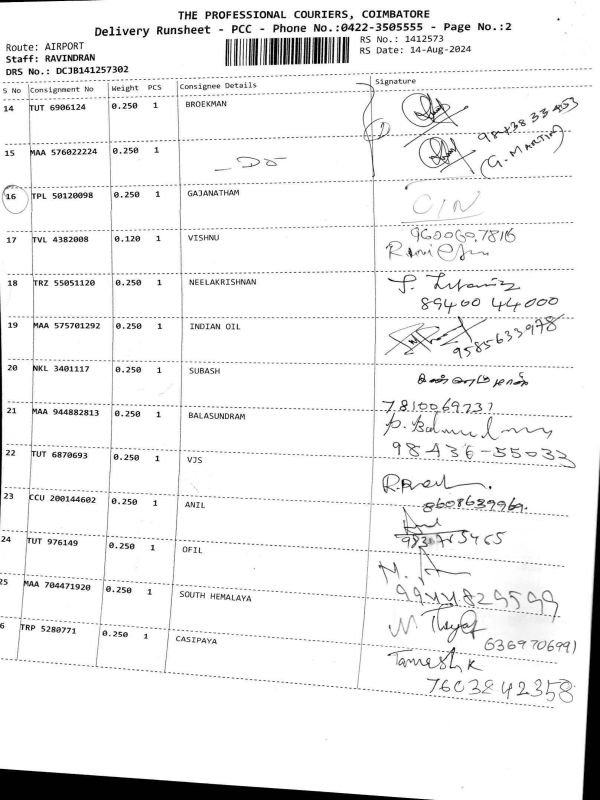 THE PROFESSIONAL COURIERS, COIMBATORE
Delivery Runsheet - PCC - Phone No.:0422-3505555 - Page No.:2
Route: AIRPORT
Staff: RAVINDRAN
DRS No.: DCJB141257302
RS No.: 1412573
RS Date: 14-Aug-2024
S No Consignment No Weight PCS Consignee Details Signature
14 TUT 6906124 0.250 1 BROEKMAN
9843833453
15 MAA 576022224 0.250 1 -Do-
(G. MARTIN)
16 TPL 50120098 0.250 1 GAJANATHAM
17 TVL 4382008 0.120 1 VISHNU 960060.7816
18 TRZ 55051120 0.250 1 NEELAKRISHNAN
89400 44000
19 MAA 575701292 0.250 1 INDIAN OIL
9585633978
20 NKL 3401117 0.250 1 SUBASH
7810069737
21 MAA 944882813 0.250 1 BALASUNDRAM
98436-55033
22 TUT 6870693 0.250 1 VJS
8608639969.
23 CCU 200144602 0.250 1 ANIL
24 TUT 976149 0.250 1 OFIL
9944829599
25 MAA 704471920 0.250 1 SOUTH HEMALAYA
6369706991
6 TRP 5280771 0.250 1 CASIPAYA
7603242358